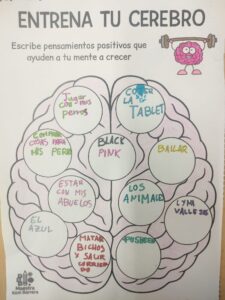 ENTRENA TU CEREBRO
Escribe pensamientos positivos que
ayuden a tu mente a crecer
Jugar
con mis
perros
COGER
LA
TABLET
COMPRAR
COSAS PARA
MIS PERR
BLACK
PINK
BAILAR
ESTAR
CON MIS
ABUELOS
LOS
ANIMALES
LYNA
VALLEJOS
EL
AZUL
MATAR
BICHOS
Y SALIR
CORRIENDO
PUSHEEN
Maestra